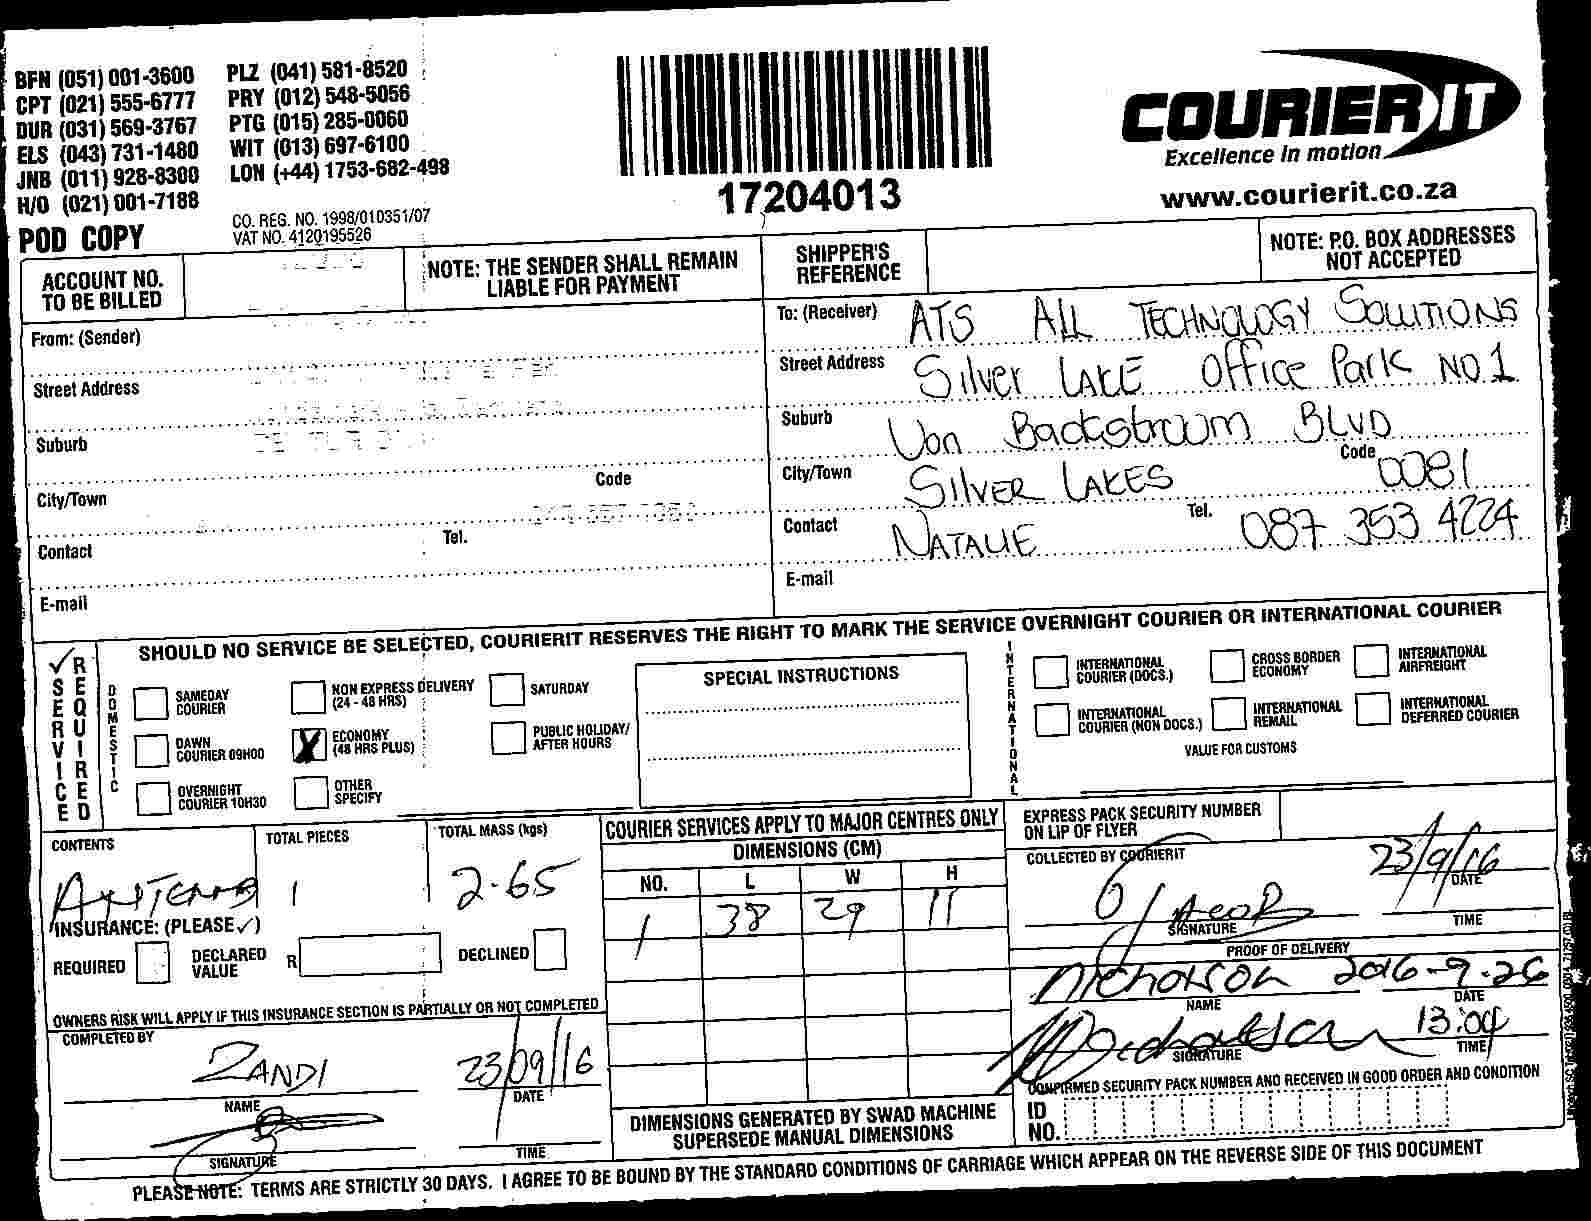 BFN (051) 001-3600 PLZ (041) 581-8520
CPT (021) 555-6777 PRY (012) 548-5056
DUR (031) 569-3767 PTG (015) 285-0060
ELS (043) 731-1480 WIT (013) 697-6100
JNB (011) 928-8300 LON (+44) 1753-682-498
H/O (021) 001-7188
CO. REG. NO. 1998/010351/07
POD COPY VAT NO. 4120195526
17204013
COURIER IT
Excellence in motion
www.courierit.co.za
ACCOUNT NO.
TO BE BILLED
NOTE: THE SENDER SHALL REMAIN
LIABLE FOR PAYMENT
SHIPPER'S
REFERENCE
NOTE: P.O. BOX ADDRESSES
NOT ACCEPTED
From: (Sender)
Street Address
Suburb
City/Town Code
Contact Tel.
E-mail
To: (Receiver) ATS All TECHNOLOGY SOLUTIONS
Street Address Silver LAKE Office Park NO 1
Suburb Von Backstroom BLVD
City/Town SILVER LAKES Code 0081
Contact NATALIE Tel. 087 353 4224
E-mail
SHOULD NO SERVICE BE SELECTED, COURIERIT RESERVES THE RIGHT TO MARK THE SERVICE OVERNIGHT COURIER OR INTERNATIONAL COURIER
✓ SERVICE REQUIRED
DOMESTIC
SAMEDAY
COURIER
NON EXPRESS DELIVERY
(24 - 48 HRS)
SATURDAY
DAWN
COURIER 09H00
X ECONOMY
(48 HRS PLUS)
PUBLIC HOLIDAY/
AFTER HOURS
OVERNIGHT
COURIER 10H30
OTHER
SPECIFY
SPECIAL INSTRUCTIONS
INTERNATIONAL
INTERNATIONAL
COURIER (DOCS.)
CROSS BORDER
ECONOMY
INTERNATIONAL
AIRFREIGHT
INTERNATIONAL
COURIER (NON DOCS.)
INTERNATIONAL
REMAIL
INTERNATIONAL
DEFERRED COURIER
VALUE FOR CUSTOMS
CONTENTS TOTAL PIECES TOTAL MASS (kgs)
1 2.65
INSURANCE: (PLEASE ✓)
REQUIRED DECLARED
VALUE R DECLINED
OWNERS RISK WILL APPLY IF THIS INSURANCE SECTION IS PARTIALLY OR NOT COMPLETED
COMPLETED BY
ZANDI 23/09/16
NAME DATE
SIGNATURE TIME
COURIER SERVICES APPLY TO MAJOR CENTRES ONLY
DIMENSIONS (CM)
NO. L W H
1 38 29 11
DIMENSIONS GENERATED BY SWAD MACHINE
SUPERSEDE MANUAL DIMENSIONS
EXPRESS PACK SECURITY NUMBER
ON LIP OF FLYER
COLLECTED BY COURIERIT
23/9/16
DATE
SIGNATURE TIME
PROOF OF DELIVERY
Nicholson 2016-9-26
NAME DATE
13:04
SIGNATURE TIME
CONFIRMED SECURITY PACK NUMBER AND RECEIVED IN GOOD ORDER AND CONDITION
ID
NO.
PLEASE NOTE: TERMS ARE STRICTLY 30 DAYS. I AGREE TO BE BOUND BY THE STANDARD CONDITIONS OF CARRIAGE WHICH APPEAR ON THE REVERSE SIDE OF THIS DOCUMENT